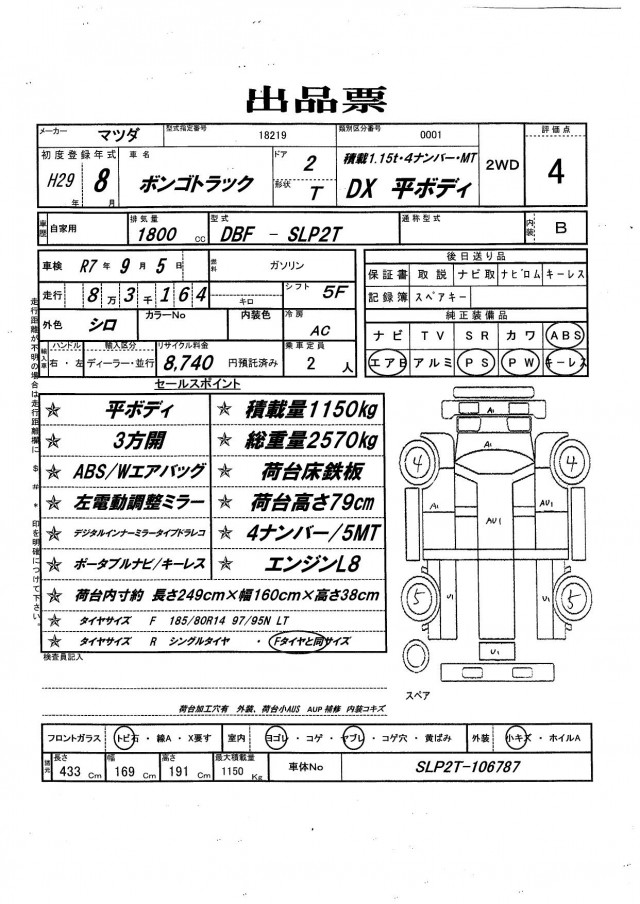 出品票
メーカー マツダ 型式指定番号 18219 類別区分番号 0001 2WD 評価点 4
初度登録年式 H29年 8月 車名 ボンゴトラック ドア 2 形状 T 積載1.15t・4ナンバー・MT DX 平ボディ
車歴 自家用 排気量 1800 cc 型式 DBF - SLP2T 通称型式 内装 B
車検 R7年 9月 5日 燃料 ガソリン
走行 8万3千164 キロ シフト 5F
外色 シロ カラーNo 内装色 冷房 AC
輸入車 ハンドル 右・左 輸入区分 ディーラー・並行 リサイクル料金 8,740 円預託済み 乗車定員 2 人
後日送り品
保証書 取説 ナビ取 ナビロム キーレス
記録簿 スペアキー
純正装備品
ナビ TV SR カワ ABS
エアB アルミ PS PW キーレス
走行距離が不明の場合は走行距離欄に $ # * 印を明確につけて下さい。
セールスポイント
☆ 平ボディ ☆ 積載量1150kg
☆ 3方開 ☆ 総重量2570kg
☆ ABS/Wエアバッグ ☆ 荷台床鉄板
☆ 左電動調整ミラー ☆ 荷台高さ79cm
☆ デジタルインナーミラータイプドラレコ ☆ 4ナンバー/5MT
☆ ポータブルナビ/キーレス ☆ エンジンL8
☆ 荷台内寸約 長さ249cm×幅160cm×高さ38cm
☆ タイヤサイズ F 185/80R14 97/95N LT
☆ タイヤサイズ R シングルタイヤ ・ Fタイヤと同サイズ
A1
A1
4 4
A1 AU1 AU1
5 5
U1 U1
U1
スペア
検査員記入
荷台加工穴有 外装、荷台小AUS AUP補修 内装コキズ
フロントガラス トビ石・線A・X要す 室内 ヨゴレ・コゲ・ヤブレ・コゲ穴・黄ばみ 外装 小キズ・ホイルA
諸元 長さ 433 Cm 幅 169 Cm 高さ 191 Cm 最大積載量 1150 Kg 車体No SLP2T-106787